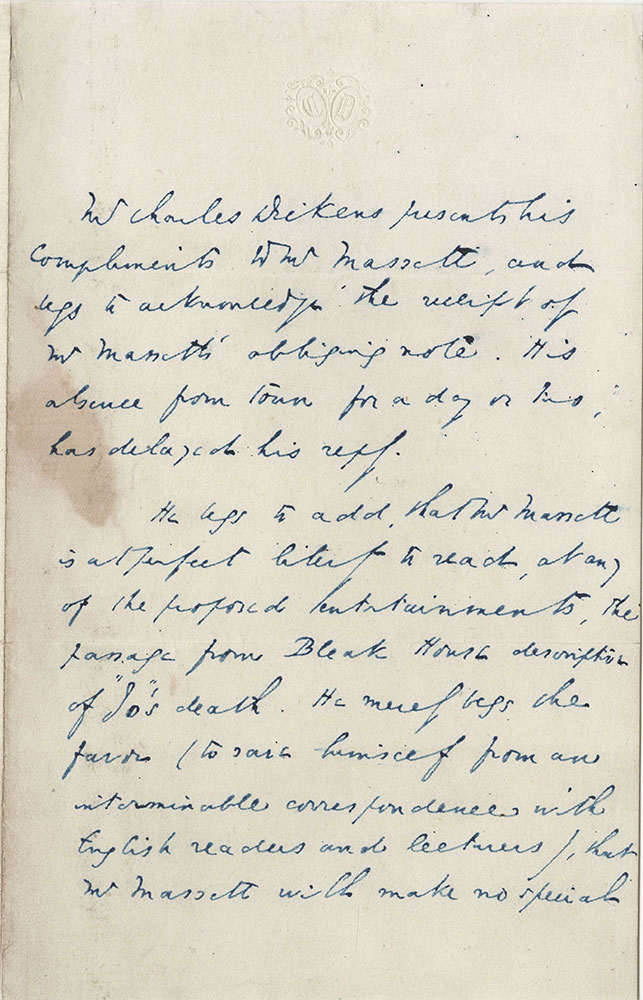 CD
Mr Charles Dickens presents his
Compliments to Mr Massett, and
begs to acknowledge the receipt of
Mr Massett's obliging note. His
absence from town for a day or two,
has delayed his reply.
He begs to add, that Mr Massett
is at perfect liberty to read, at any
of the proposed entertainments, the
passage from Bleak House descriptive
of "Jo"'s death. He merely begs the
favor (to save himself from an
interminable correspondence with
English readers and lecturers), that
Mr Massett will make no special